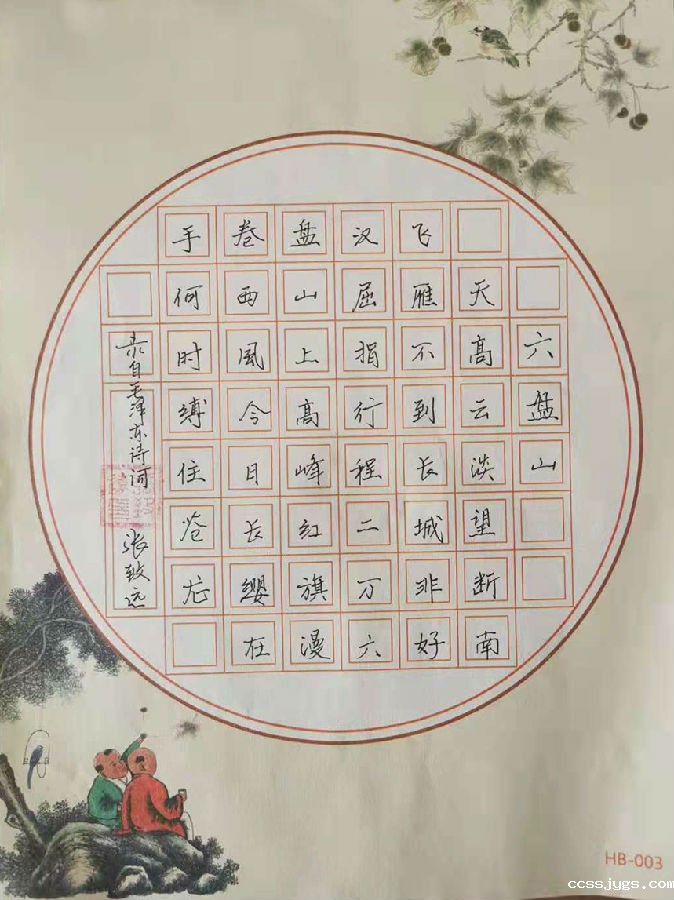 六盘山
天高云淡望断南
飞雁不到长城非好
汉屈指行程二万六
盘山上高峰红旗漫
卷西風今日长缨在
手何时缚住苍龙
录自毛泽东诗词 张致远
HB-003
ccssjygs.com